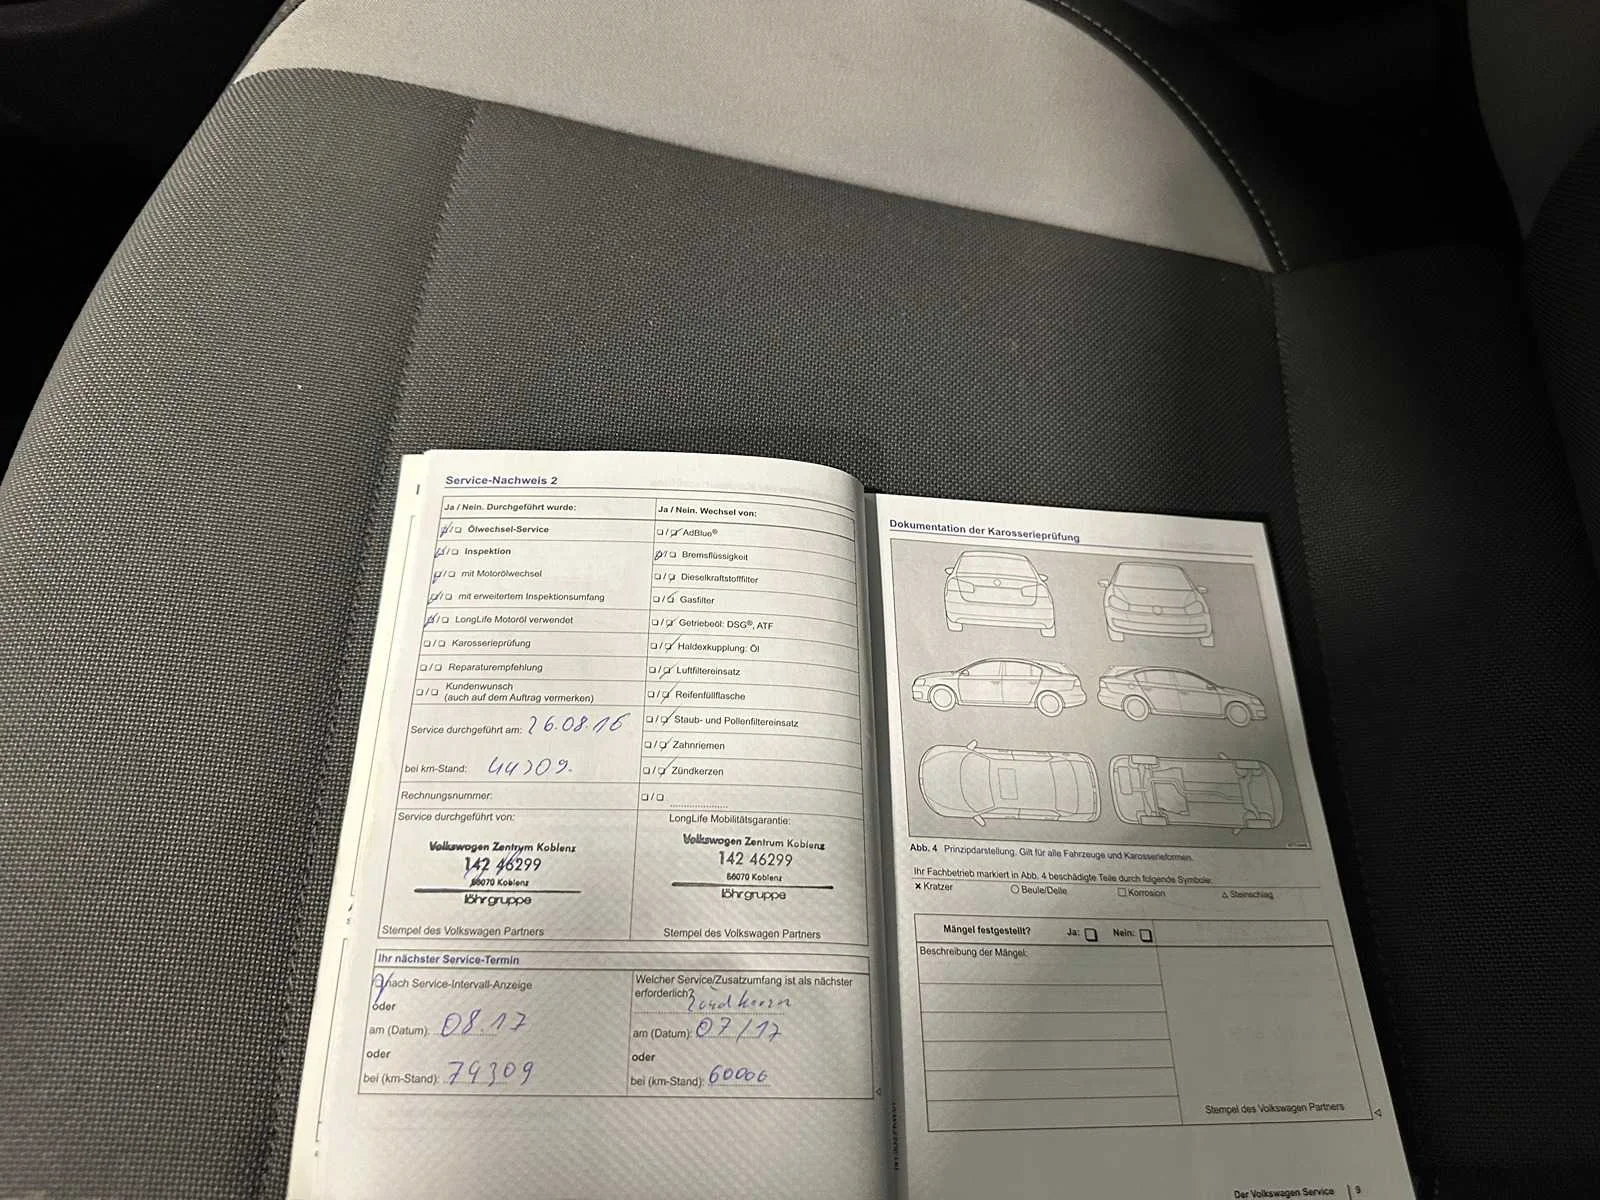 Service-Nachweis 2
Ja / Nein. Durchgeführt wurde:
Ölwechsel-Service
Inspektion
mit Motorölwechsel
mit erweitertem Inspektionsumfang
LongLife Motoröl verwendet
Karosserieprüfung
Reparaturempfehlung
Kundenwunsch
(auch auf dem Auftrag vermerken)
Service durchgeführt am: 26.08.16
bei km-Stand: 44309.
Rechnungsnummer:
Service durchgeführt von:
Volkswagen Zentrum Koblenz
142 46299
56070 Koblenz
löhrgruppe
Stempel des Volkswagen Partners
Ja / Nein. Wechsel von:
AdBlue®
Bremsflüssigkeit
Dieselkraftstofffilter
Gasfilter
Getriebeöl: DSG®, ATF
Haldexkupplung: Öl
Luftfiltereinsatz
Reifenfüllflasche
Staub- und Pollenfiltereinsatz
Zahnriemen
Zündkerzen
LongLife Mobilitätsgarantie:
Volkswagen Zentrum Koblenz
142 46299
56070 Koblenz
löhrgruppe
Stempel des Volkswagen Partners
Ihr nächster Service-Termin
nach Service-Intervall-Anzeige
oder
am (Datum): 08.17
oder
bei (km-Stand): 74309
Welcher Service/Zusatzumfang ist als nächster
erforderlich?
am (Datum): 07/17
oder
bei (km-Stand): 60000
Dokumentation der Karosserieprüfung
Abb. 4 Prinzipdarstellung. Gilt für alle Fahrzeuge und Karosserieformen.
Ihr Fachbetrieb markiert in Abb. 4 beschädigte Teile durch folgende Symbole:
Kratzer Beule/Delle Korrosion Steinschlag
Mängel festgestellt? Ja: Nein:
Beschreibung der Mängel:
Stempel des Volkswagen Partners
Der Volkswagen Service 9